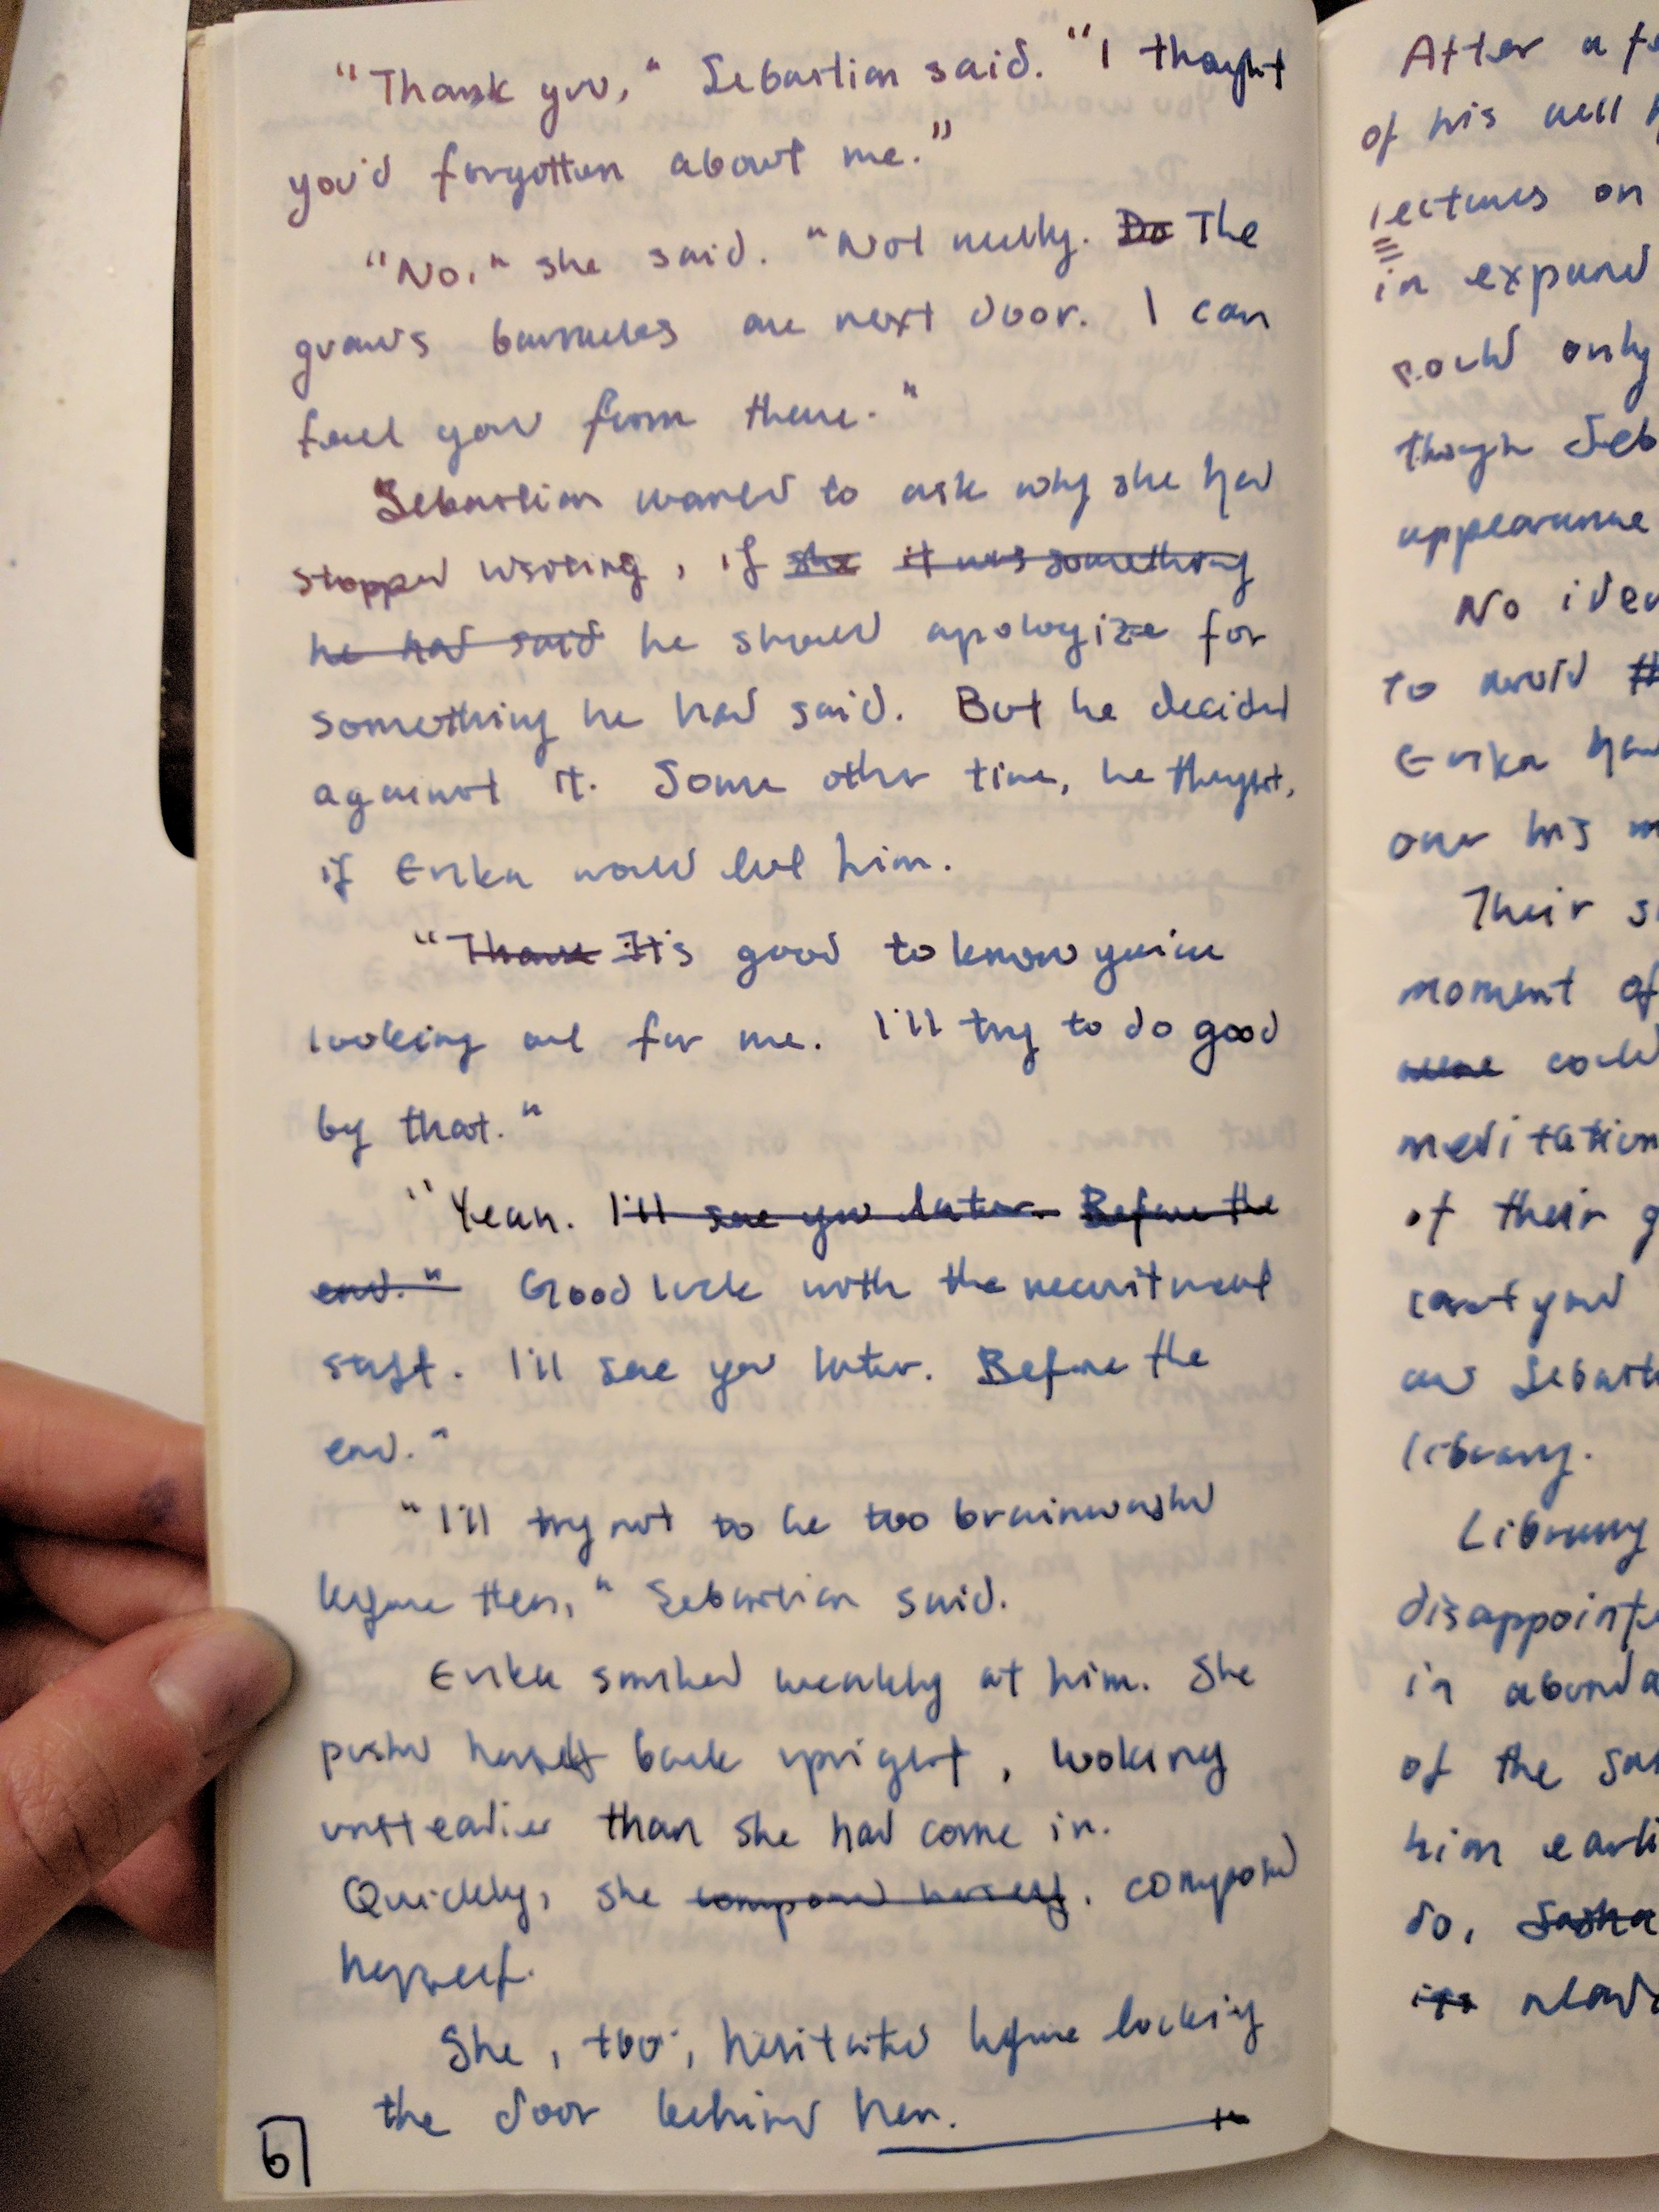 "Thank you," Sebastian said. "I thought
you'd forgotten about me."
"No," she said. "Not really. Do The
guards barracks are next door. I can
feel you from there."
Sebastian wanted to ask why she had
stopped writing, if she it was something
he had said he should apologize for
something he had said. But he decided
against it. Some other time, he thought,
if Erika would let him.
"Thank It's good to know you're
looking out for me. I'll try to do good
by that."
"Yeah. I'll see you later. Before the
end." Good luck with the recruitment
staff. I'll see you later. Before the
end."
"I'll try not to be too brainwashed
before then," Sebastian said.
Erika smirked weakly at him. She
pushed herself back upright, looking
unsteadier than she had come in.
Quickly, she composed herself. composed
herself.
She, too, hesitated before locking
the door behind her.
6
After a fe
of his cell
lectures on
in expand
could only
though Seb
appearance
No idea
to avoid
Erika had
over his m
Their s
moment of
could
meditation
of their g
courtyard
and Sebasti
library.
Library
disappointe
in abunda
of the sa
him earli
do, Sasha
its alread